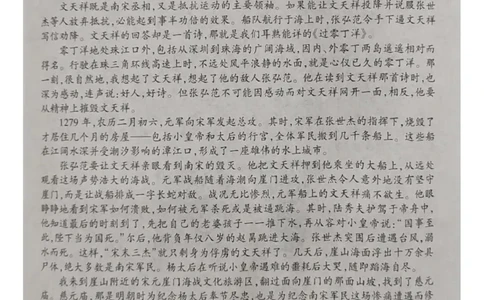 文天祥既是南宋丞相，又是抵抗运动的主要领袖。如果能让文天祥投降并说服张世
杰等人放弃抵抗，必能起到事半功倍的效果。船队航行于海上时，张弘范令手下逼文天祥
写信劝降。文天祥的回答却是一首诗，那就是我们耳熟能详的《过零丁洋》。
零丁洋地处珠江口外，包括从深圳到珠海的广阔海域，因内、外零丁两岛遥遥相对而
得名。行驶在珠三角环线高速上时，不远处风平浪静的水面，就是心仪已久的零丁洋。那
一刻，很自然地，我想起了文天祥，想起了他的敌人张弘范。他在读到文天祥那首诗时，也
深为感动，连声说：好人，好诗。但张弘范不可能因感动而对文天祥网开一面，相反，他要
从精神上摧毁文天祥。
1279年，农历二月初六，元军向宋军发起总攻。其时，宋军在张世杰的指挥下，烧毁了
才居住几个月的房屋——包括小皇帝和太后的行宫，全体军民搬到几千条船上。这些船
在江阔水深并受潮汐影响的潭江口，形成了一座雄伟的水上城市。
张弘范要让文天祥亲眼看到南宋的毁灭。他把文天祥押到他表坐的大船上，从远处
观看这场声势浩大的海战。元军战船随着海潮向崖门进攻，张世杰令人意外地没有坚守
崖门，而是让战船排成一字长蛇对敌。战况无比惨烈，元军船上的文天祥痛不欲生。他眼
睁睁地看到宋军如何溃败，如何被元军杀死或是被逼跳海。其时，陆秀夫护驾于帝舟中，
他知道最后的时刻到了，先把自己的老婆孩子一一推下水，再从容对小皇帝说：“国事至
此，陛下当为国死。”尔后，他背负年仅八岁的赵昺跳进大海。张世杰突围后遭遇台风，溺
水而死。这样，“宋末三杰”就只剩身为俘虏的文天祥了。几天后，崖山海面浮出十万余具
尸体，绝大多数是南宋军民。杨太后在听说小皇帝遇难的噩耗后大哭，随即蹈海自尽。
我来到崖山附近的宋元崖门海战文化旅游区，翻过面向崖门的那面山坡，找到了慈元
庙。慈元庙，那是明朝时为纪念杨太后奉节尽忠，也是为纪念南宋军民这场惨痛遭遇而修